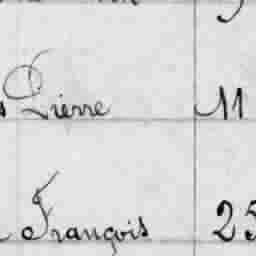 Pierre 11
François 25